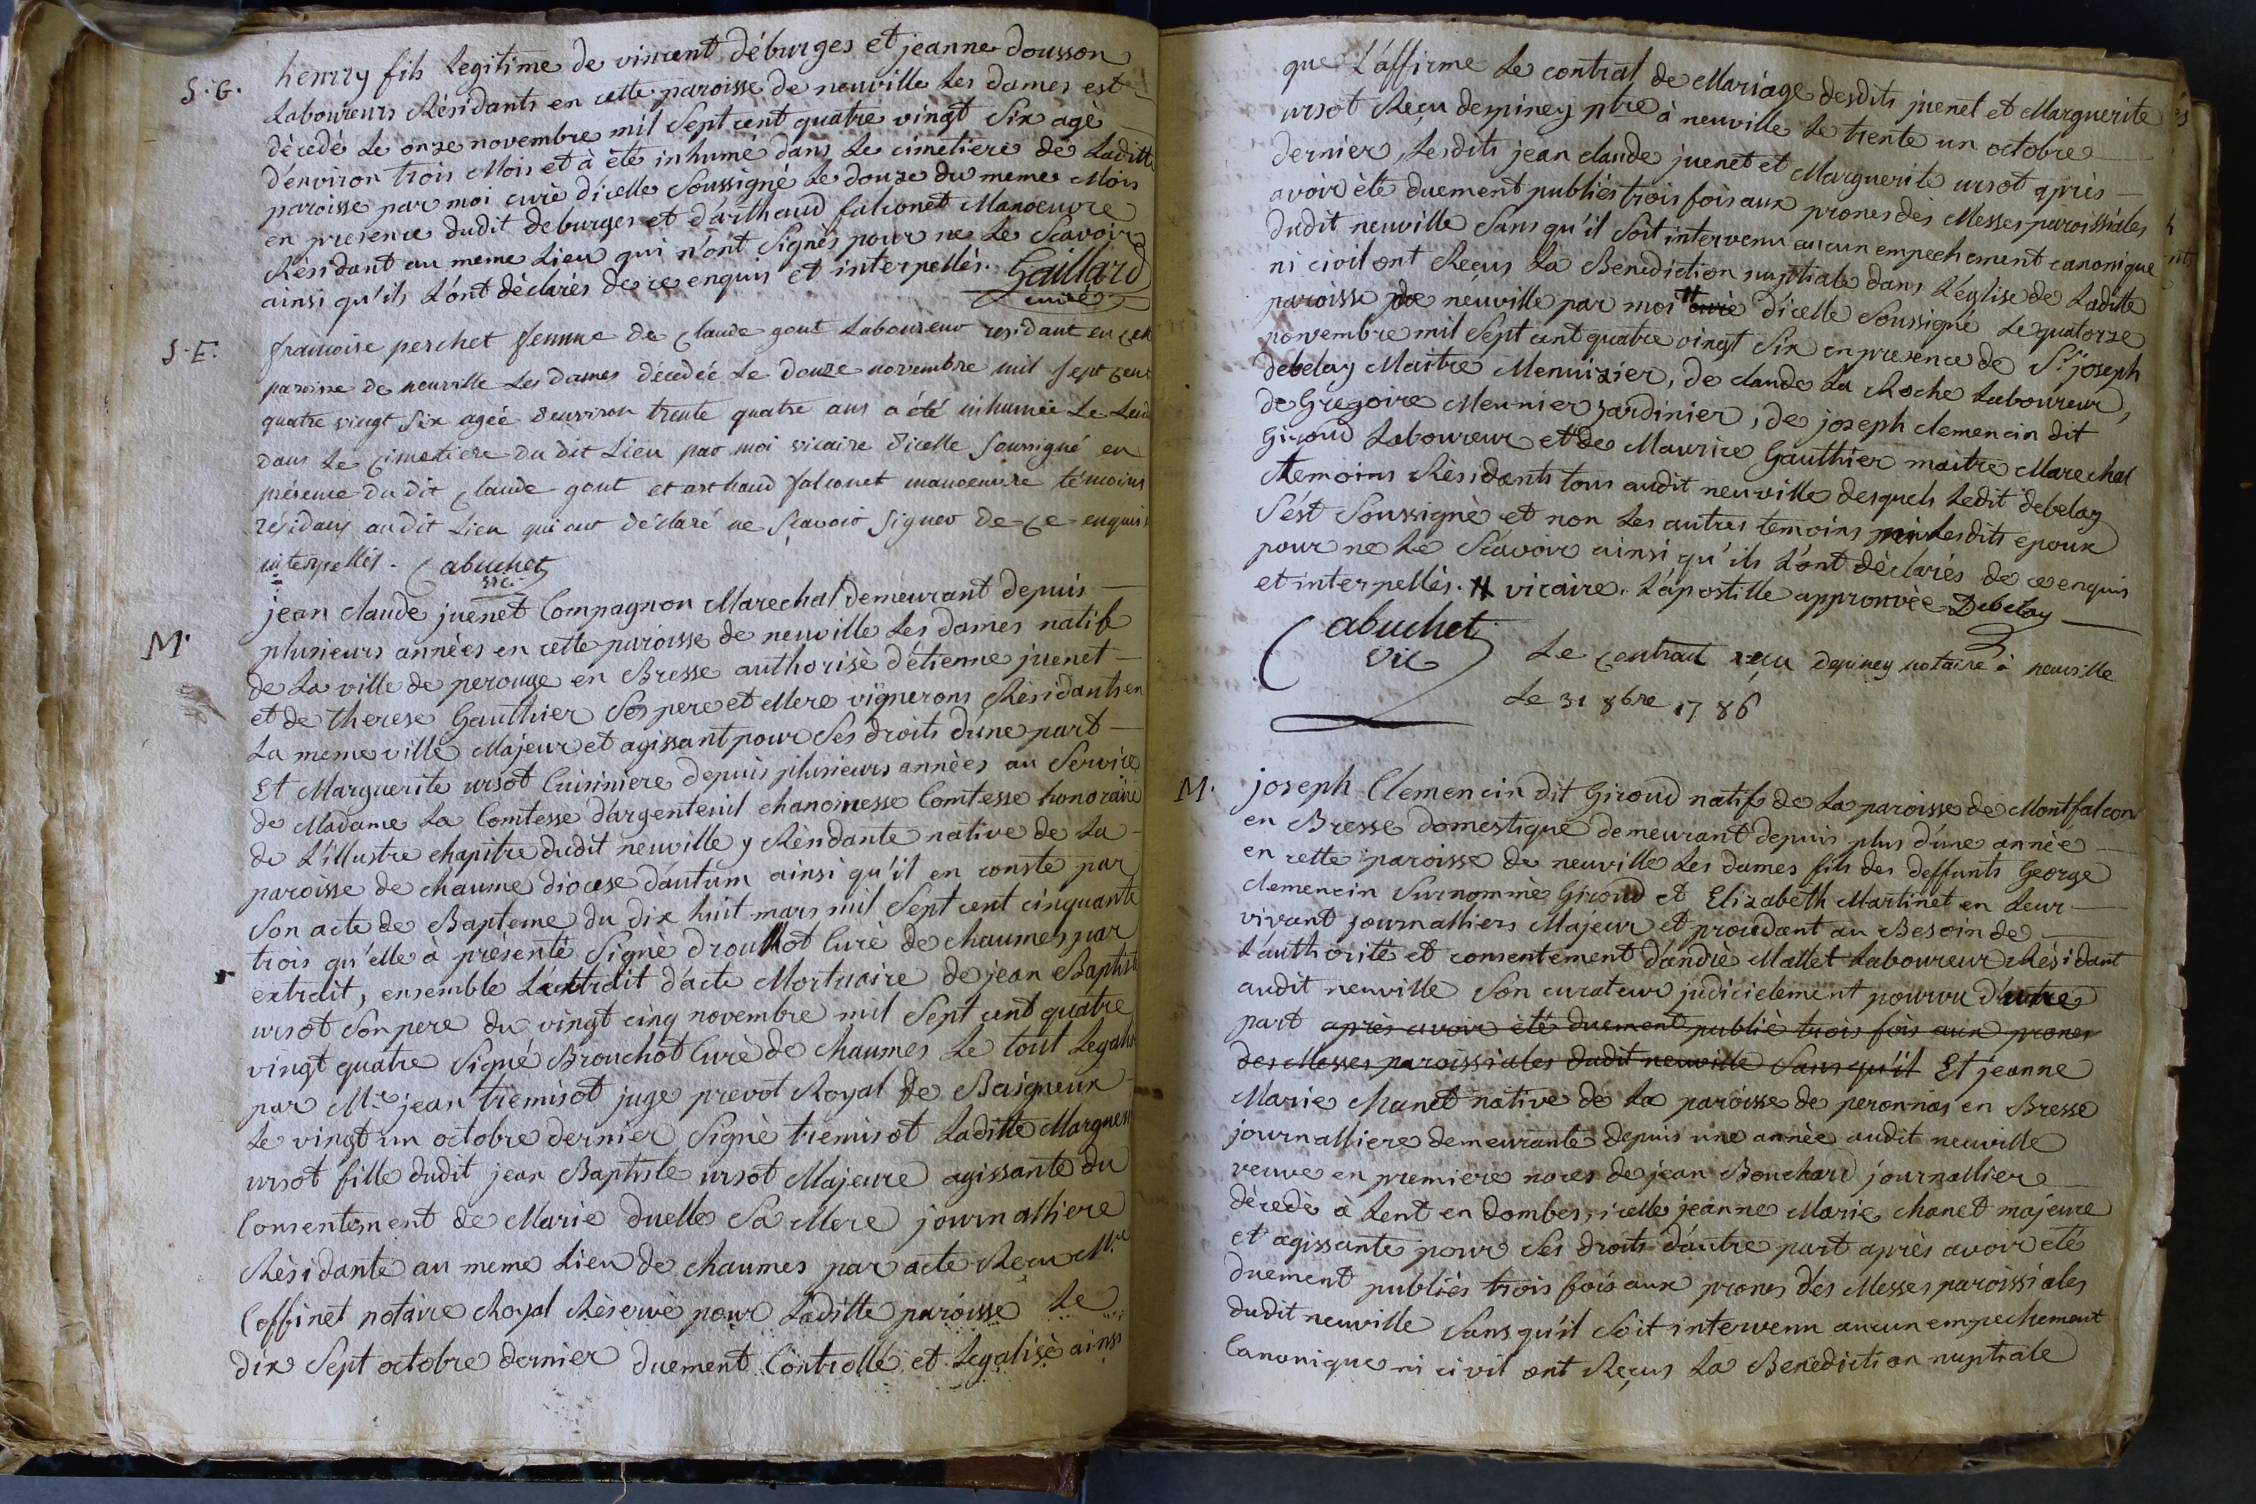 S. G.
henrry fils Legitime de vincent déburges et jeanne dousson
Laboureurs Résidants en cette paroisse de neuville Les dames est
dècedè Le onze novembre mil Sept cent quatre vingt Six agè
d'environ trois Mois et à été inhumé dans Le cimetiere de Laditte
paroisse par moi curè d'icelle Soussigné Le douze du meme Mois
en presence dudit deburges et d'arthaud falconet Manoeuvre
Résidant au meme Lieu qui n'ont Signés pour ne Le Scavoir
ainsi qu'ils L'ont déclarés de ce enquis et interpellés. Gaillard
curé
S. E.
francoise perchet femme de Claude gout Laboureur residant en cett
paroisse de neuville Les dames décedée Le douze novembre mil sept cent
quatre vingt Six agée d'environ trente quatre ans a été inhumée Le Lend
dans Le Cimetiere du dit Lieu par moi vicaire d'icelle soussigné en
présence du dit Claude gout et arthaud falconet manoeuvre témoins
résidans audit Lieu qui ont déclaré ne Sçavoir signer de ce enquis
interpellés. Cabuchet
vic.
M.
jean claude juenet Compagnon Marechal demeurant depuis
plusieurs années en cette paroisse de neuville Les dames natif
de La ville de perouge en Bresse authorisè d'étienne juenet
et de therese Gauthier Ses pere et Mere vignerons Résidants en
La meme ville Majeur et agissant pour Ses droits d'une part
Et Marguerite ursot Cuisiniere depuis plusieurs années au Service
de Madame La Comtesse d'argenteuil chanoinesse Comtesse honoraire
de L'illustre chapitre dudit neuville y Résidante native de La
paroisse de chaume diocese d'autum ainsi qu'il en conste par
Son acte de Bapteme du dix huit mars mil Sept cent cinquante
trois qu'elle à présenté Signè drouhot Curè de chaumes par
extrdit, ensemble L'extrdit d'acte Mortuaire de jean Baptiste
ursot Son pere du vingt cinq novembre mil Sept cent quatre
vingt quatre Signé Brouchot Curè de chaumes Le tout Legalis
par Mre jean tremisot juge prevot Royal de Baigneux
Le vingt un octobre dernier Signè tremisot Laditte Margueri
ursot fille dudit jean Baptiste ursot Majeure agissante du
Consentement de Marie duelle Sa Mere journalliere
Résidante au meme Lieu de chaumes par acte Reçu Mre
Coffinet notaire Royal Réservè pour Laditte paroisse Le
dix Sept octobre dernier duement Controllé et Legalisè ainsi
que L'affirme Le contrat de Mariage desdits juenet et Marguerite
ursot Reçu depiney ntre à neuville Le trente un octobre
dernier, Lesdits jean claude juenet et Marguerite ursot après
avoir été duement publiés trois fois aux prones des Messes paroissiales
dudit neuville Sans qu'il Soit intervenu aucun empechement canonique
ni civil ont Reçus La Benediction nuptiale dans L'église de Laditte
paroisse de neuville par moi # curè d'icelle Soussigné Le quatorze
novembre mil Sept cent quatre vingt Six en presence de Sr joseph
debelay Maitre Menuizier, de claude La Roche Laboureur,
de Grégoire Meunier jardinier, de joseph clemencin dit
Giroud Laboureur et de Maurice Gauthier maitre Marechal
temoins Résidants tous audit neuville desquels Ledit debelay
S'est Soussignè et non Les autres temoins ni Lesdits epoux
pour ne Le Sçavoir ainsi qu'ils L'ont déclarés de ce enquis
et interpellés. # vicaire. L'apostille approuvée Debelay
Cabuchet
vic
Le Contrat reçu Depiney notaire à neuville
Le 31 8bre 1786
M.
joseph Clemencin dit Giroud natif de La paroisse de Montfalcon
en Bresse domestique demeurant depuis plus d'une année
en cette paroisse de neuville Les dames fils des deffunts George
clemencin Surnommè Giroud et Elizabeth Martinet en Leur
vivant journalliers Majeur et procedant au Besoin de
L'authorité et consentement d'andrè Mallet Laboureur Résidant
audit neuville Son curateur judicielement pourvu d'une
part après avoir été duement publiè trois fois aux prones
des Messes paroissiales dudit neuville Sans qu'il Et jeanne
Marie Chanet native de La paroisse de peronnas en Bresse
journalliere demeurante depuis une annèe audit neuville
veuve en premiere noces de jean Bouchard journallier
dècedè à Lent en Dombes, icelle jeanne Marie chanet majeure
et agissante pour Ses droits d'autre part après avoir été
duement publiés trois fois aux prones des Messes paroissiales
dudit neuville Sans qu'il Soit intervenu aucun empechement
Canonique ni civil ont Reçus La Benediction nuptiale